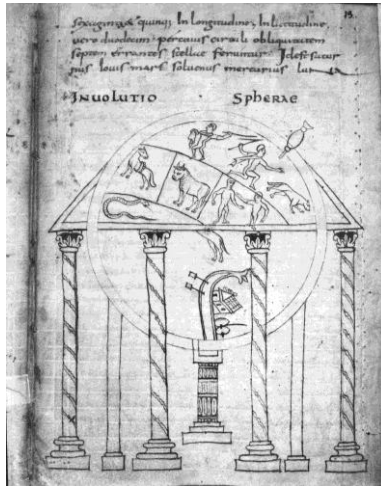 sexaginta & quinq; In longitudine; In latitudine
vero duodecim per cuius circuli obliquitatem
septem errantes stellae feruntur Idest satur
nus Iouis mars sol uenus mercurius lu
INUOLUTIO SPHERAE